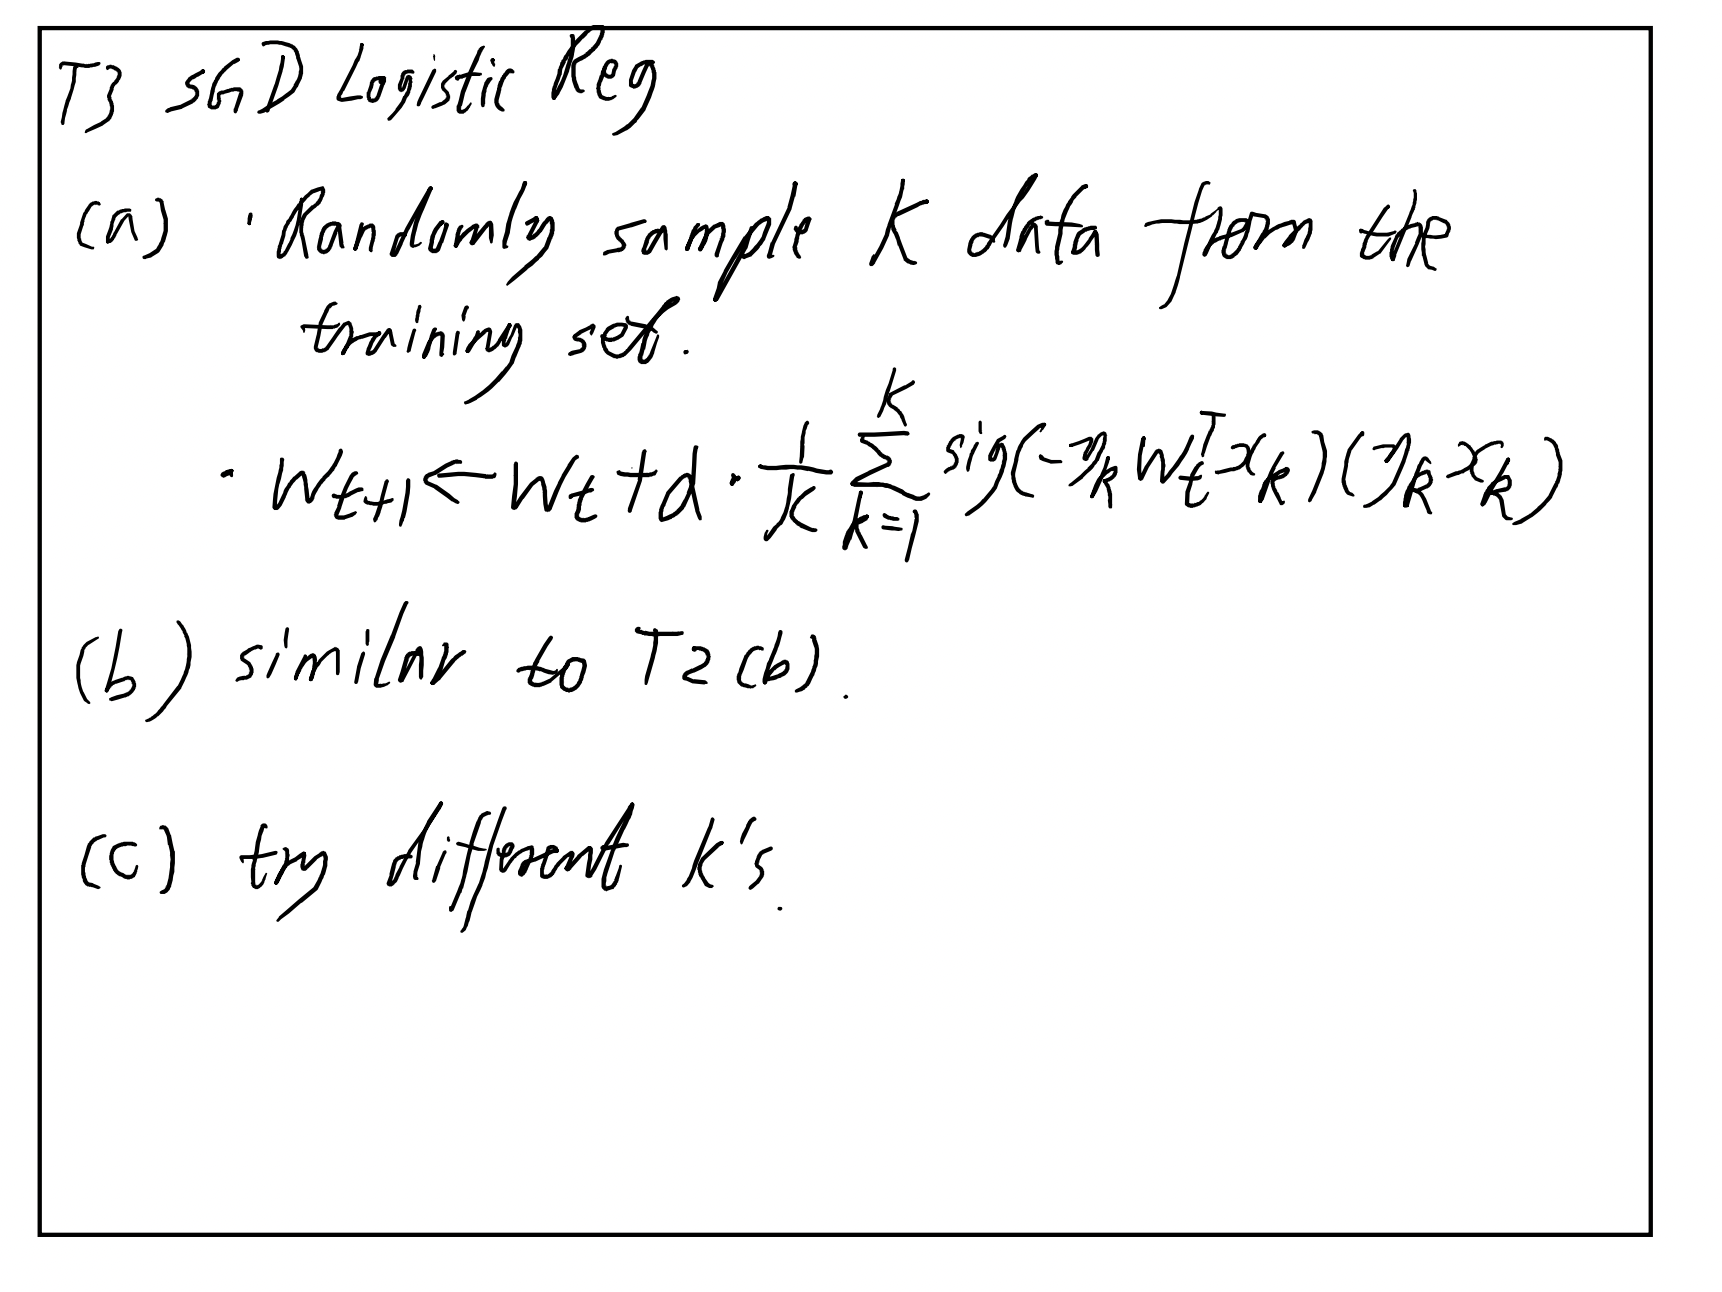 T3 SGD Logistic Reg
(a) · Randomly sample K data from the
training set.
· W_{t+1} ← W_t + d · \frac{1}{K} \sum_{k=1}^{K} sig(-y_k W_t^T x_k)(y_k x_k)
(b) similar to T2 (b).
(c) try different K's.